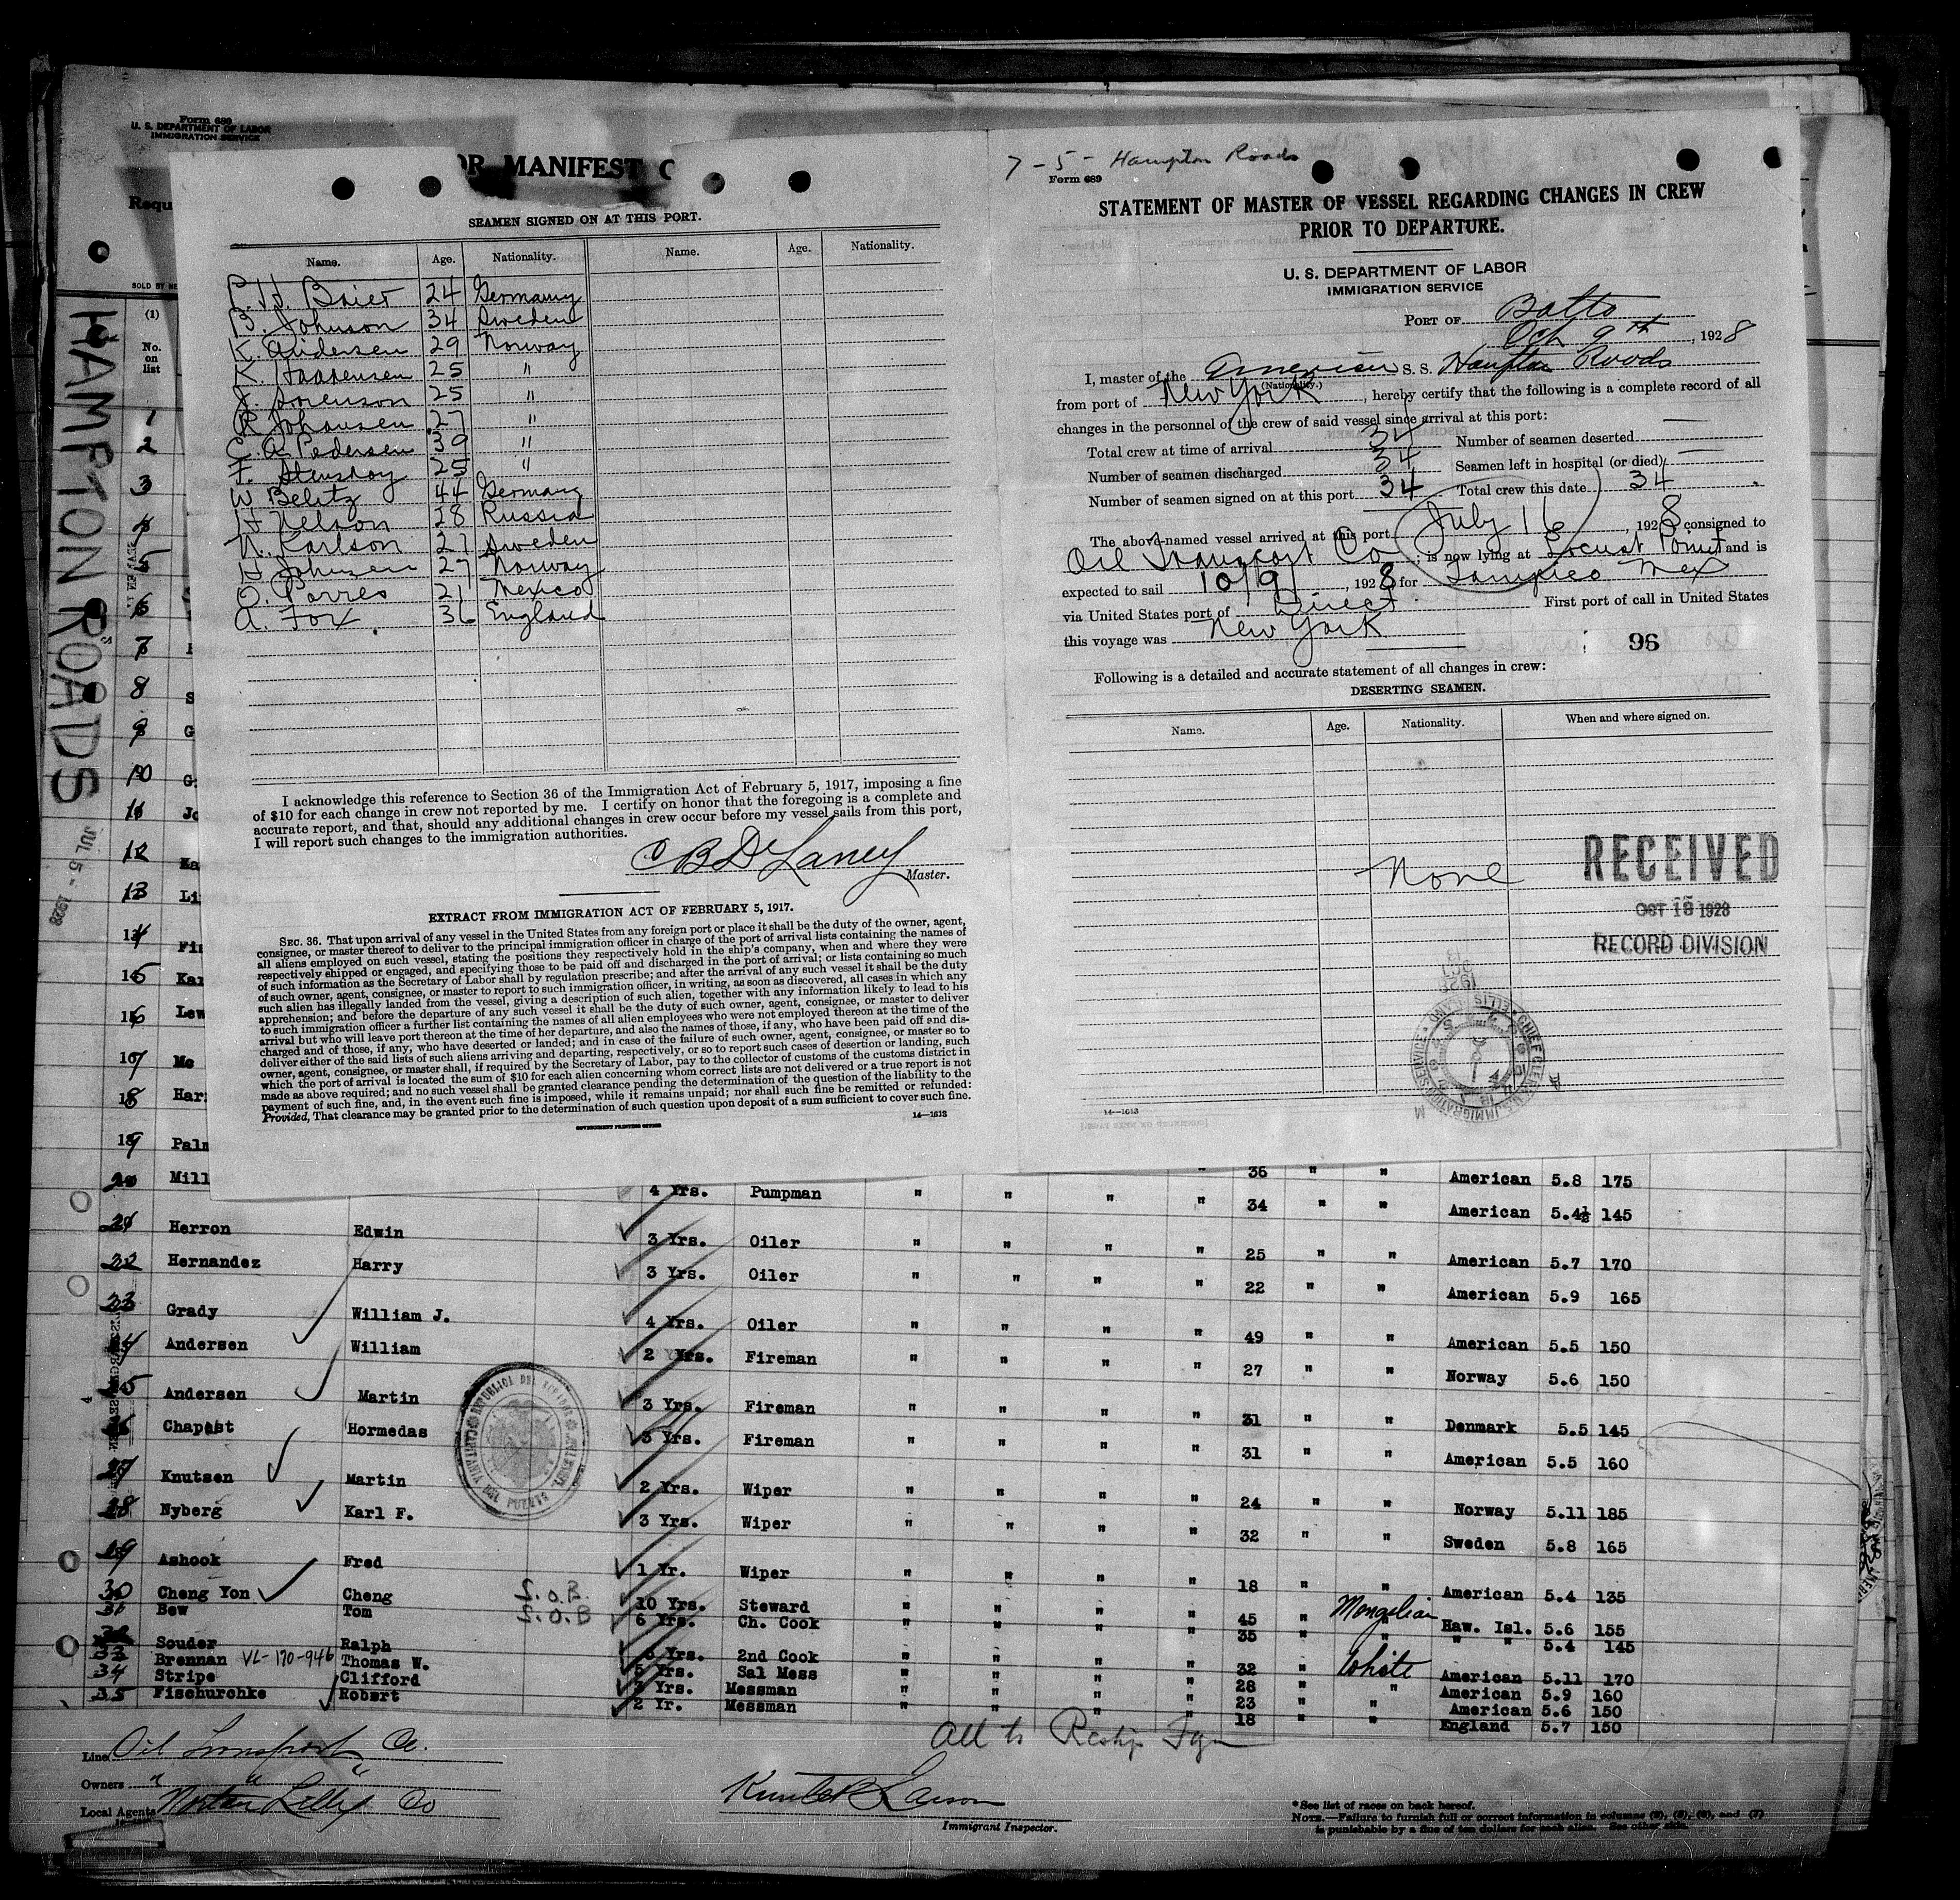 Form 689
U. S. DEPARTMENT OF LABOR
IMMIGRATION SERVICE
OR MANIFEST
Requ
SOLD BY
HAMPTON ROADS
JUL 5 - 1928
(1)
No.
on
list
1
2
3
4
5
6
7
8 S
9 G
10 G
11 Jo
12 Ka
13 Li
14 Fi
15 Kar
16 Lew
17 Mc
18 Har
19 Palm
20 Mill
SEAMEN SIGNED ON AT THIS PORT.
Name. Age. Nationality. Name. Age. Nationality.
P. H. Baier 24 Germany
B. Johnson 34 Sweden
K. Andersen 29 Norway
K. Haakensen 25 "
J. Sorenson 25 "
R Johansen 27 "
C. A. Pedersen 39 "
F. 25 "
W Belitz 44 Germany
H Nelson 28 Russia
N. Karlson 27 Sweden
H Johnsen 27 Norway
O. Porres 21 Mexico
A. Fox 36 England
I acknowledge this reference to Section 36 of the Immigration Act of February 5, 1917, imposing a fine
of $10 for each change in crew not reported by me. I certify on honor that the foregoing is a complete and
accurate report, and that, should any additional changes in crew occur before my vessel sails from this port,
I will report such changes to the immigration authorities.
C B DeLaney
Master.
EXTRACT FROM IMMIGRATION ACT OF FEBRUARY 5, 1917.
SEC. 36. That upon arrival of any vessel in the United States from any foreign port or place it shall be the duty of the owner, agent,
consignee, or master thereof to deliver to the principal immigration officer in charge of the port of arrival lists containing the names of
all aliens employed on such vessel, stating the positions they respectively hold in the ship's company, when and where they were
respectively shipped or engaged, and specifying those to be paid off and discharged in the port of arrival; or lists containing so much
of such information as the Secretary of Labor shall by regulation prescribe; and after the arrival of any such vessel it shall be the duty
of such owner, agent, consignee, or master to report to such immigration officer, in writing, as soon as discovered, all cases in which any
such alien has illegally landed from the vessel, giving a description of such alien, together with any information likely to lead to his
apprehension; and before the departure of any such vessel it shall be the duty of such owner, agent, consignee, or master to deliver
to such immigration officer a further list containing the names of all alien employees who were not employed thereon at the time of the
arrival but who will leave port thereon at the time of her departure, and also the names of those, if any, who have been paid off and dis-
charged and of those, if any, who have deserted or landed; and in case of the failure of such owner, agent, consignee, or master so to
deliver either of the said lists of such aliens arriving and departing, respectively, or so to report such cases of desertion or landing, such
owner, agent, consignee, or master shall, if required by the Secretary of Labor, pay to the collector of customs of the customs district in
which the port of arrival is located the sum of $10 for each alien concerning whom correct lists are not delivered or a true report is not
made as above required; and no such vessel shall be granted clearance pending the determination of the question of the liability to the
payment of such fine, and, in the event such fine is imposed, while it remains unpaid; nor shall such fine be remitted or refunded:
Provided, That clearance may be granted prior to the determination of such question upon deposit of a sum sufficient to cover such fine.
14—1613
GOVERNMENT PRINTING OFFICE
7 - 5 - Hampton Roads
Form 689
STATEMENT OF MASTER OF VESSEL REGARDING CHANGES IN CREW
PRIOR TO DEPARTURE.
U. S. DEPARTMENT OF LABOR
IMMIGRATION SERVICE
PORT OF Balto
Oct 9th, 1928
I, master of the American S. S. Hampton Roads
(Nationality.)
from port of New York, hereby certify that the following is a complete record of all
changes in the personnel of the crew of said vessel since arrival at this port:
Total crew at time of arrival 34 Number of seamen deserted —
Number of seamen discharged 34 Seamen left in hospital (or died) —
Number of seamen signed on at this port 34 Total crew this date 34
The above-named vessel arrived at this port July 16, 1928 consigned to
Oil Transport Co, is now lying at Locust Point and is
expected to sail 10/9/, 1928 for Tampico Mex
via United States port of Direct First port of call in United States
this voyage was New York
96
Following is a detailed and accurate statement of all changes in crew:
DESERTING SEAMEN.
Name. Age. Nationality. When and where signed on.
None
RECEIVED
OCT 18 1928
RECORD DIVISION
14—1613
36 " " American 5.8 175
4 Yrs. Pumpman " " " " 34 " " American 5.4½ 145
21 Herron Edwin 3 Yrs. Oiler " " " " 25 " " American 5.7 170
22 Hernandez Harry 3 Yrs. Oiler " " " " 22 " " American 5.9 165
23 Grady William J. 4 Yrs. Oiler " " " " 49 " " American 5.5 150
24 Andersen William 2 Yrs. Fireman " " " " 27 " " Norway 5.6 150
25 Andersen Martin 3 Yrs. Fireman " " " " 31 " " Denmark 5.5 145
26 Chapast Hormedas 3 Yrs. Fireman " " " " 31 " " American 5.5 160
27 Knutsen Martin 2 Yrs. Wiper " " " " 24 " " Norway 5.11 185
28 Nyberg Karl F. 3 Yrs. Wiper " " " " 32 " " Sweden 5.8 165
29 Ashook Fred 1 Yr. Wiper " " " " 18 " " American 5.4 135
30 Cheng Yon Cheng S.O.B. 10 Yrs. Steward " " " " 45 " Mongolian Haw. Isl. 5.6 155
31 Bew Tom S.O.B 6 Yrs. Ch. Cook " " " " 35 " " " " 5.4 145
32 Souder Ralph 5 Yrs. 2nd Cook " " " " 32 " White American 5.11 170
33 Brennan VL-190-946 Thomas W. 5 Yrs. Sal Mess " " " " 28 " " American 5.9 160
34 Stripe Clifford Yrs. Messman " " " " 23 " " American 5.6 150
35 Fischurchke Robert 2 Yr. Messman " " " " 18 " " England 5.7 150
All to Reship Fgn
Line Oil Transport Co.
Owners " " "
Local Agents Norton Lilly Co
Immigrant Inspector.
* See list of races on back hereof.
NOTE.—Failure to furnish full or correct information in columns (2), (5), (6), and (7)
is punishable by a fine of ten dollars for each alien. See other side.